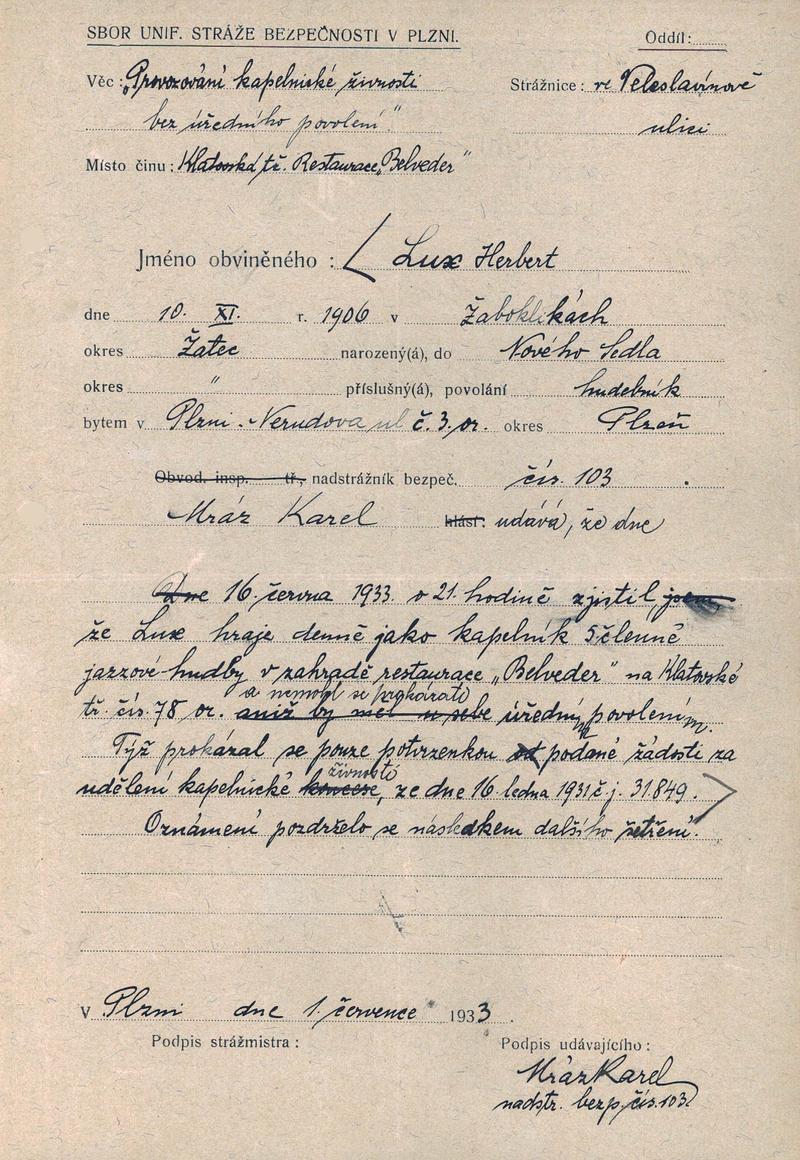 SBOR UNIF. STRÁŽE BEZPEČNOSTI V PLZNI. Oddíl:
Věc: „Provozování kapelnické živnosti Strážnice: ve Veleslavínově
bez úředního povolení." ulici
Místo činu: Klatovská tř. Restaurace „Belveder"
Jméno obviněného: Lux Herbert
dne 10. XI. r. 1906 v Žaboklikách
okres Žatec narozený(á), do Nového Sedla
okres " příslušný(á), povolání hudebník
bytem v Plzni - Nerudova ul č. 3 or. okres Plzeň
Obvod. insp. tř., nadstrážník bezpeč. čís. 103.
Mráz Karel hlásí: udává, že dne
Dne 16. června 1933. o 21. hodině zjistil, jsem,
že Lux hraje denně jako kapelník 5členné
jazzové hudby v zahradě restaurace „Belveder" na Klatovské
a nemohl se prokázati
tř. čís. 78 or. aniž by měl u sebe úředním povolením.
Týž prokázal se pouze potvrzenkou od podané žádosti za
živnosti
udělení kapelnické koncese, ze dne 16. ledna 1931 č. j. 31.849.
Oznámení pozdrželo se následkem dalšího šetření.
V Plzni dne 1. července 1933.
Podpis strážmistra: Podpis udávajícího:
Mráz Karel
nadstr. bezp. čís. 103